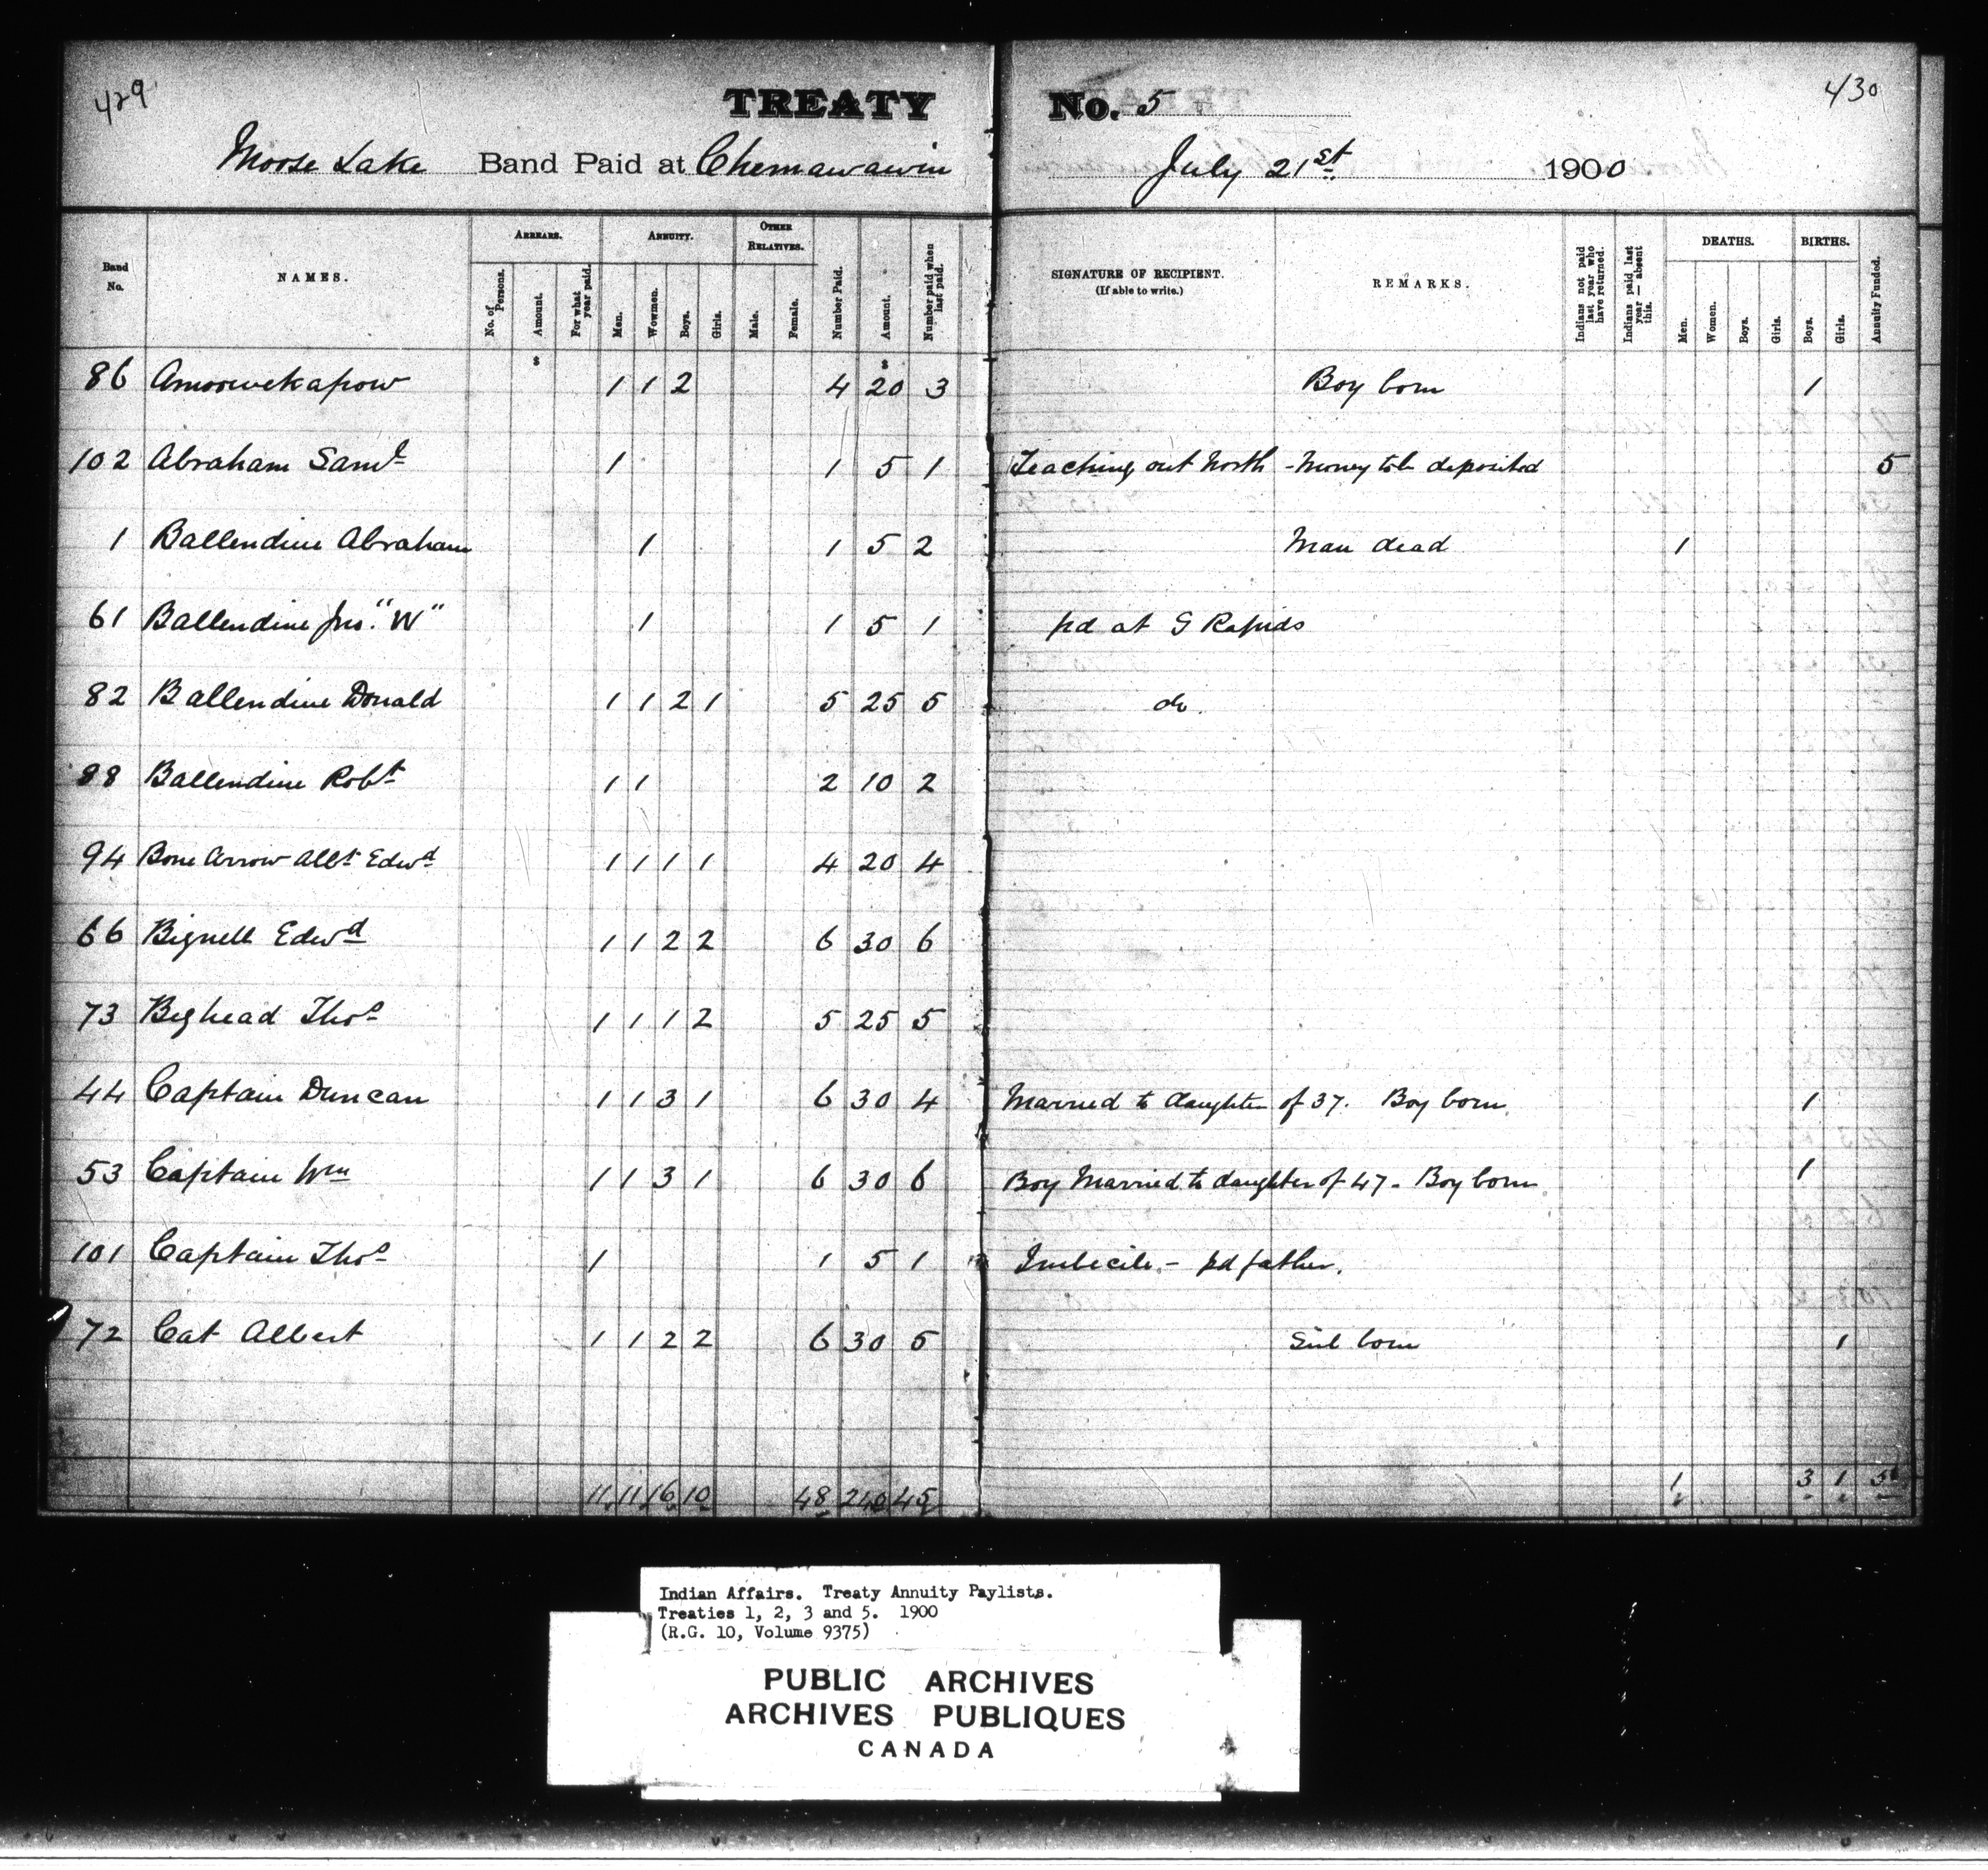 429 TREATY No. 5 430
Moose Lake Band Paid at Chemawawin July 21st 1900
Band No. NAMES. ARREARS. No. of Persons. Amount. For what year paid. ANNUITY. Men. Wowmen. Boys. Girls. OTHER RELATIVES. Male. Female. Number Paid. Amount. Number paid when last paid. SIGNATURE OF RECIPIENT. (If able to write.) REMARKS. Indians not paid last year who have returned. Indians paid last year — absent this. DEATHS. Men. Women. Boys. Girls. BIRTHS. Boys. Girls. Annuity Funded.
$ $
86 Amoowekapow 1 1 2 4 20 3 Boy born 1
102 Abraham Saml 1 1 5 1 Teaching out North - Money to be deposited 5
1 Ballendine Abraham 1 1 5 2 Man dead 1
61 Ballendine Jno. "W" 1 1 5 1 pd at G Rapids
82 Ballendine Donald 1 1 2 1 5 25 5 do.
88 Ballendine Robt 1 1 2 10 2
94 Bone Arrow Albt Edwd 1 1 1 1 4 20 4
66 Bignell Edwd 1 1 2 2 6 30 6
73 Bighead Thos 1 1 1 2 5 25 5
44 Captain Duncan 1 1 3 1 6 30 4 Married to daughter of 37. Boy born. 1
53 Captain Wm 1 1 3 1 6 30 6 Boy Married to daughter of 47 - Boy born 1
101 Captain Thos 1 1 5 1 Imbecile - pd father.
72 Cat Albert 1 1 2 2 6 30 5 Girl born 1
11 11 16 10 48 240 45 1 3 1
Indian Affairs. Treaty Annuity Paylists.
Treaties 1, 2, 3 and 5. 1900
(R.G. 10, Volume 9375)
PUBLIC ARCHIVES
ARCHIVES PUBLIQUES
CANADA